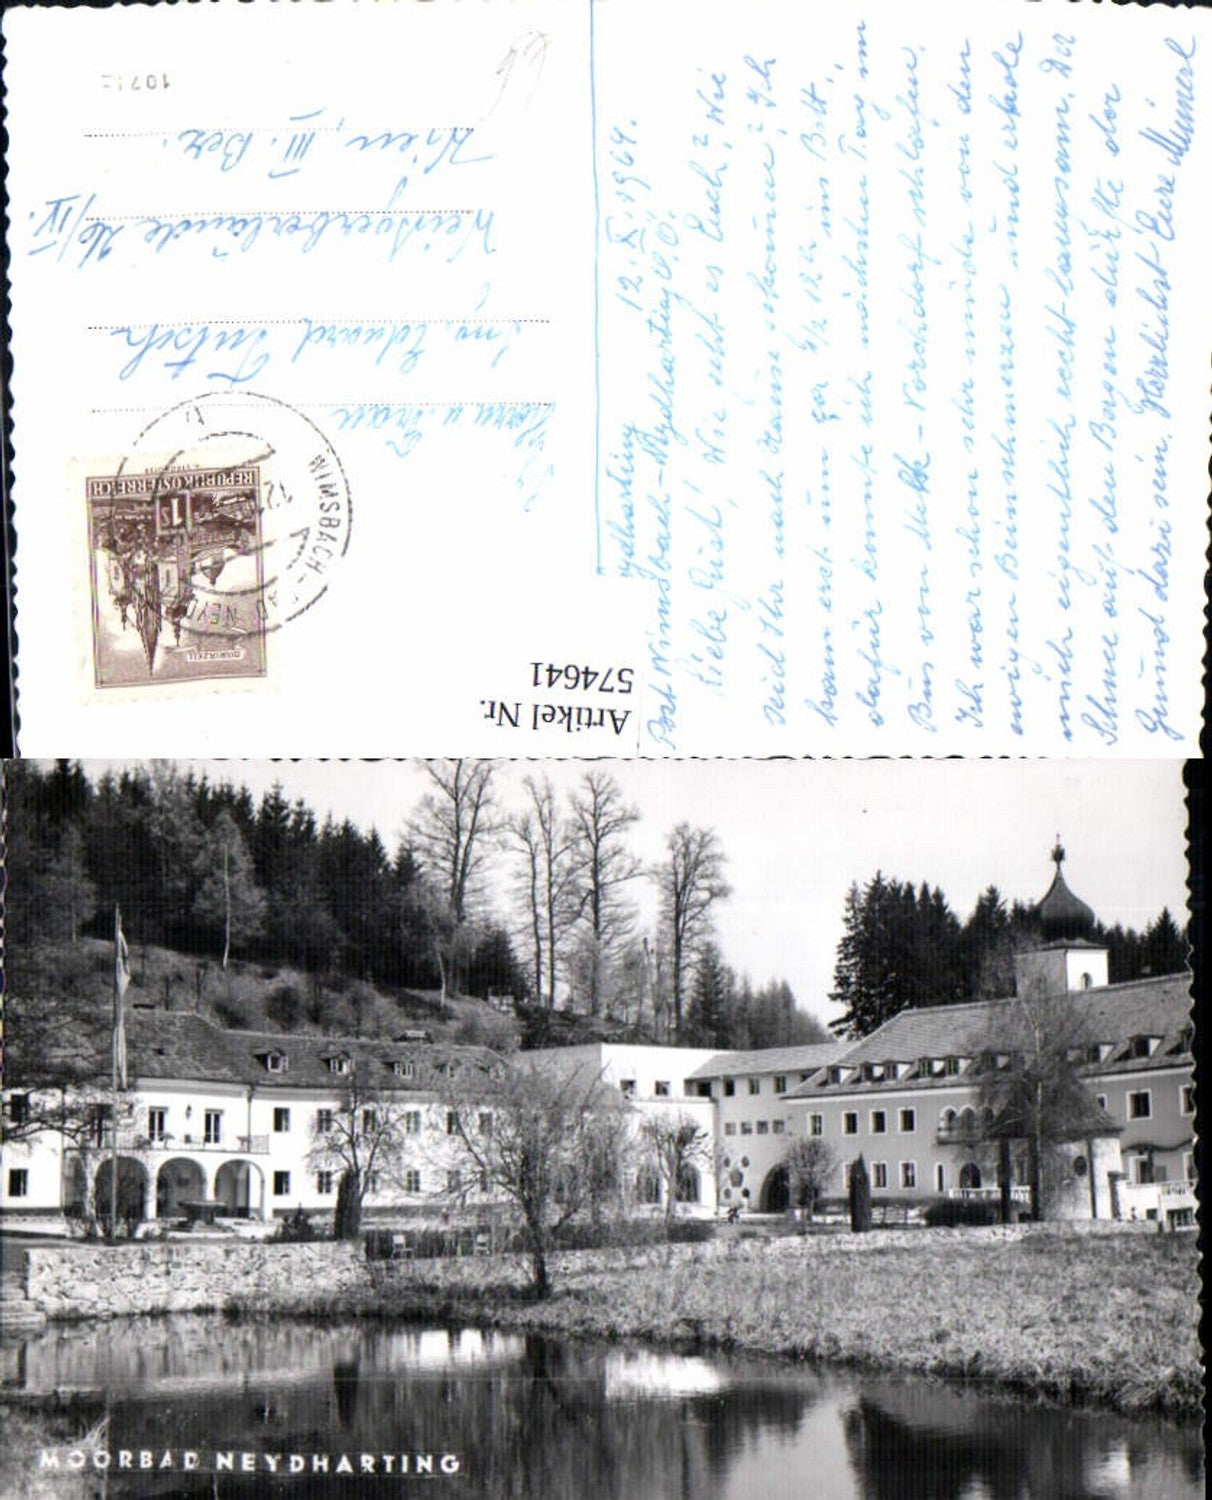 Neydharting 12.X.1964.
Post Wimsbach-Neydharting O.Ö.
Liebe Gusti! Wie geht es Euch? Wie
seid Ihr nach Hause gekommen? Ich
kam erst um 1/2 12h ins Bett,
dafür konnte ich nächsten Tag im
Bus von Melk - Vorchdorf schlafen.
Ich war schon sehr müde von den
ewigen Beinschmerzen und erhole
mich eigentlich recht langsam. Der
Schnee auf den Bergen dürfte der
Grund dazu sein. Herzlichst Eure
Herrn u. Frau
Ing. Eduard
Weissgerberlände 26/IV.
Wien, III. Bez.
1071
REPUBLIK ÖSTERREICH
1S
WIMSBACH-BAD NEYD
12
Artikel Nr.
574641
MOORBAD NEYDHARTING